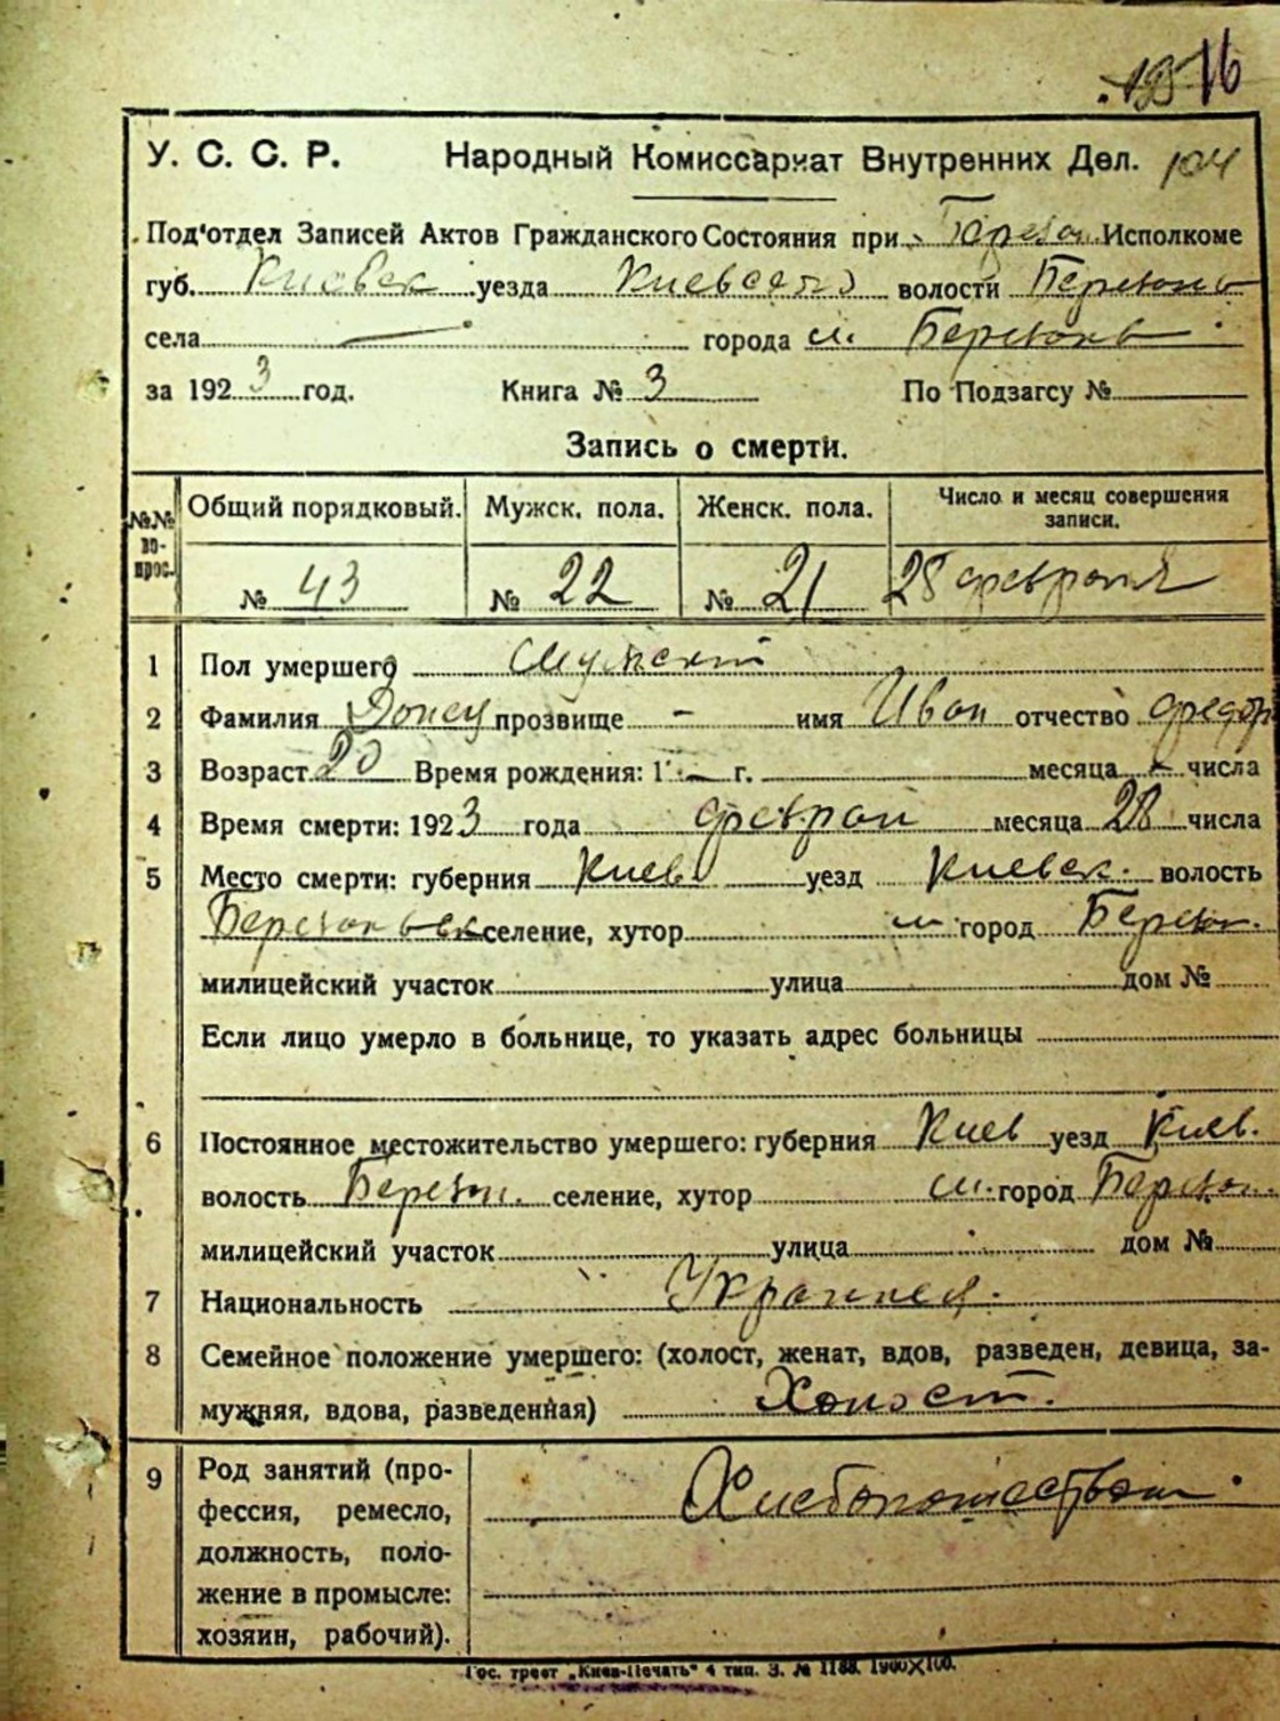 16
У. С. С. Р. Народный Комиссариат Внутренних Дел. 104
Под'отдел Записей Актов Гражданского Состояния при Березан. Исполкоме
губ. Киевск уезда Киевского волости Березань
села — города м. Березань
за 1923 год. Книга № 3 По Подзагсу №
Запись о смерти.
№№ вопрос. Общий порядковый. Мужск. пола. Женск. пола. Число и месяц совершения записи.
№ 43 № 22 № 21 28 февраля
1 Пол умершего Мужской
2 Фамилия Донец прозвище - имя Иван отчество Федор
3 Возраст 20 Время рождения: 1 — г. месяца - числа
4 Время смерти: 1923 года феврал месяца 28 числа
5 Место смерти: губерния Киев. уезд Киевск. волость
Березаньск селение, хутор м город Березан.
милицейский участок улица дом №
Если лицо умерло в больнице, то указать адрес больницы
6 Постоянное местожительство умершего: губерния Киев уезд Киев.
волость Березан. селение, хутор м. город Березан.
милицейский участок улица дом №
7 Национальность Украинец.
8 Семейное положение умершего: (холост, женат, вдов, разведен, девица, за-
мужняя, вдова, разведенная) Холост.
9 Род занятий (про-
фессия, ремесло,
должность, поло-
жение в промысле:
хозяин, рабочий).
Хлебопашеством.
Гос. трест „Киев-Печать" 4 тип. З. № 1188. 1900×100.